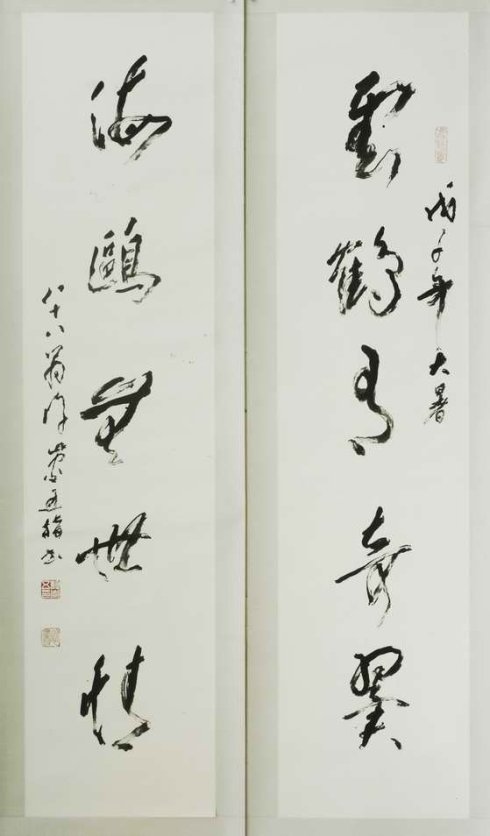 丙子年大暑
雲鶴有奇翼
海鷗無世情
八十八翁書